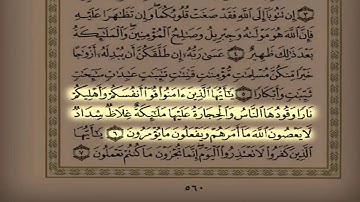 ٣ إِن تَتُوبَا إِلَى ٱللَّهِ فَقَدْ صَغَتْ قُلُوبُكُمَا وَإِن تَظَٰهَرَا عَلَيْهِ
فَإِنَّ ٱللَّهَ هُوَ مَوْلَىٰهُ وَجِبْرِيلُ وَصَٰلِحُ ٱلْمُؤْمِنِينَ وَٱلْمَلَٰٓئِكَةُ
بَعْدَ ذَٰلِكَ ظَهِيرٌ ٤ عَسَىٰ رَبُّهُۥٓ إِن طَلَّقَكُنَّ أَن يُبْدِلَهُۥٓ أَزْوَٰجًا
خَيْرًا مِّنكُنَّ مُسْلِمَٰتٍ مُّؤْمِنَٰتٍ قَٰنِتَٰتٍ تَٰٓئِبَٰتٍ عَٰبِدَٰتٍ سَٰٓئِحَٰتٍ
ثَيِّبَٰتٍ وَأَبْكَارًا ٥ يَٰٓأَيُّهَا ٱلَّذِينَ ءَامَنُوا۟ قُوٓا۟ أَنفُسَكُمْ وَأَهْلِيكُمْ
نَارًا وَقُودُهَا ٱلنَّاسُ وَٱلْحِجَارَةُ عَلَيْهَا مَلَٰٓئِكَةٌ غِلَاظٌ شِدَادٌ
لَّا يَعْصُونَ ٱللَّهَ مَآ أَمَرَهُمْ وَيَفْعَلُونَ مَا يُؤْمَرُونَ ٦ يَٰٓأَيُّهَا
ٱلَّذِينَ كَفَرُوا۟ لَا تَعْتَذِرُوا۟ ٱلْيَوْمَ إِنَّمَا تُجْزَوْنَ مَا كُنتُمْ تَعْمَلُونَ ٧
٥٦٠